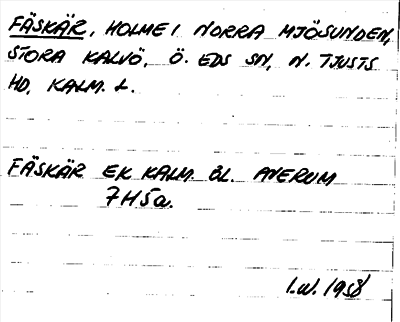 FÄSKÄR, HOLME I NORRA MJÖSUNDEN,
STORA KALVÖ, Ö. EDS SN, N. TJUSTS
HD, KALM. L.
FÄSKÄR EK KALM. BL. AVERUM
7H5a.
I.W. 1958